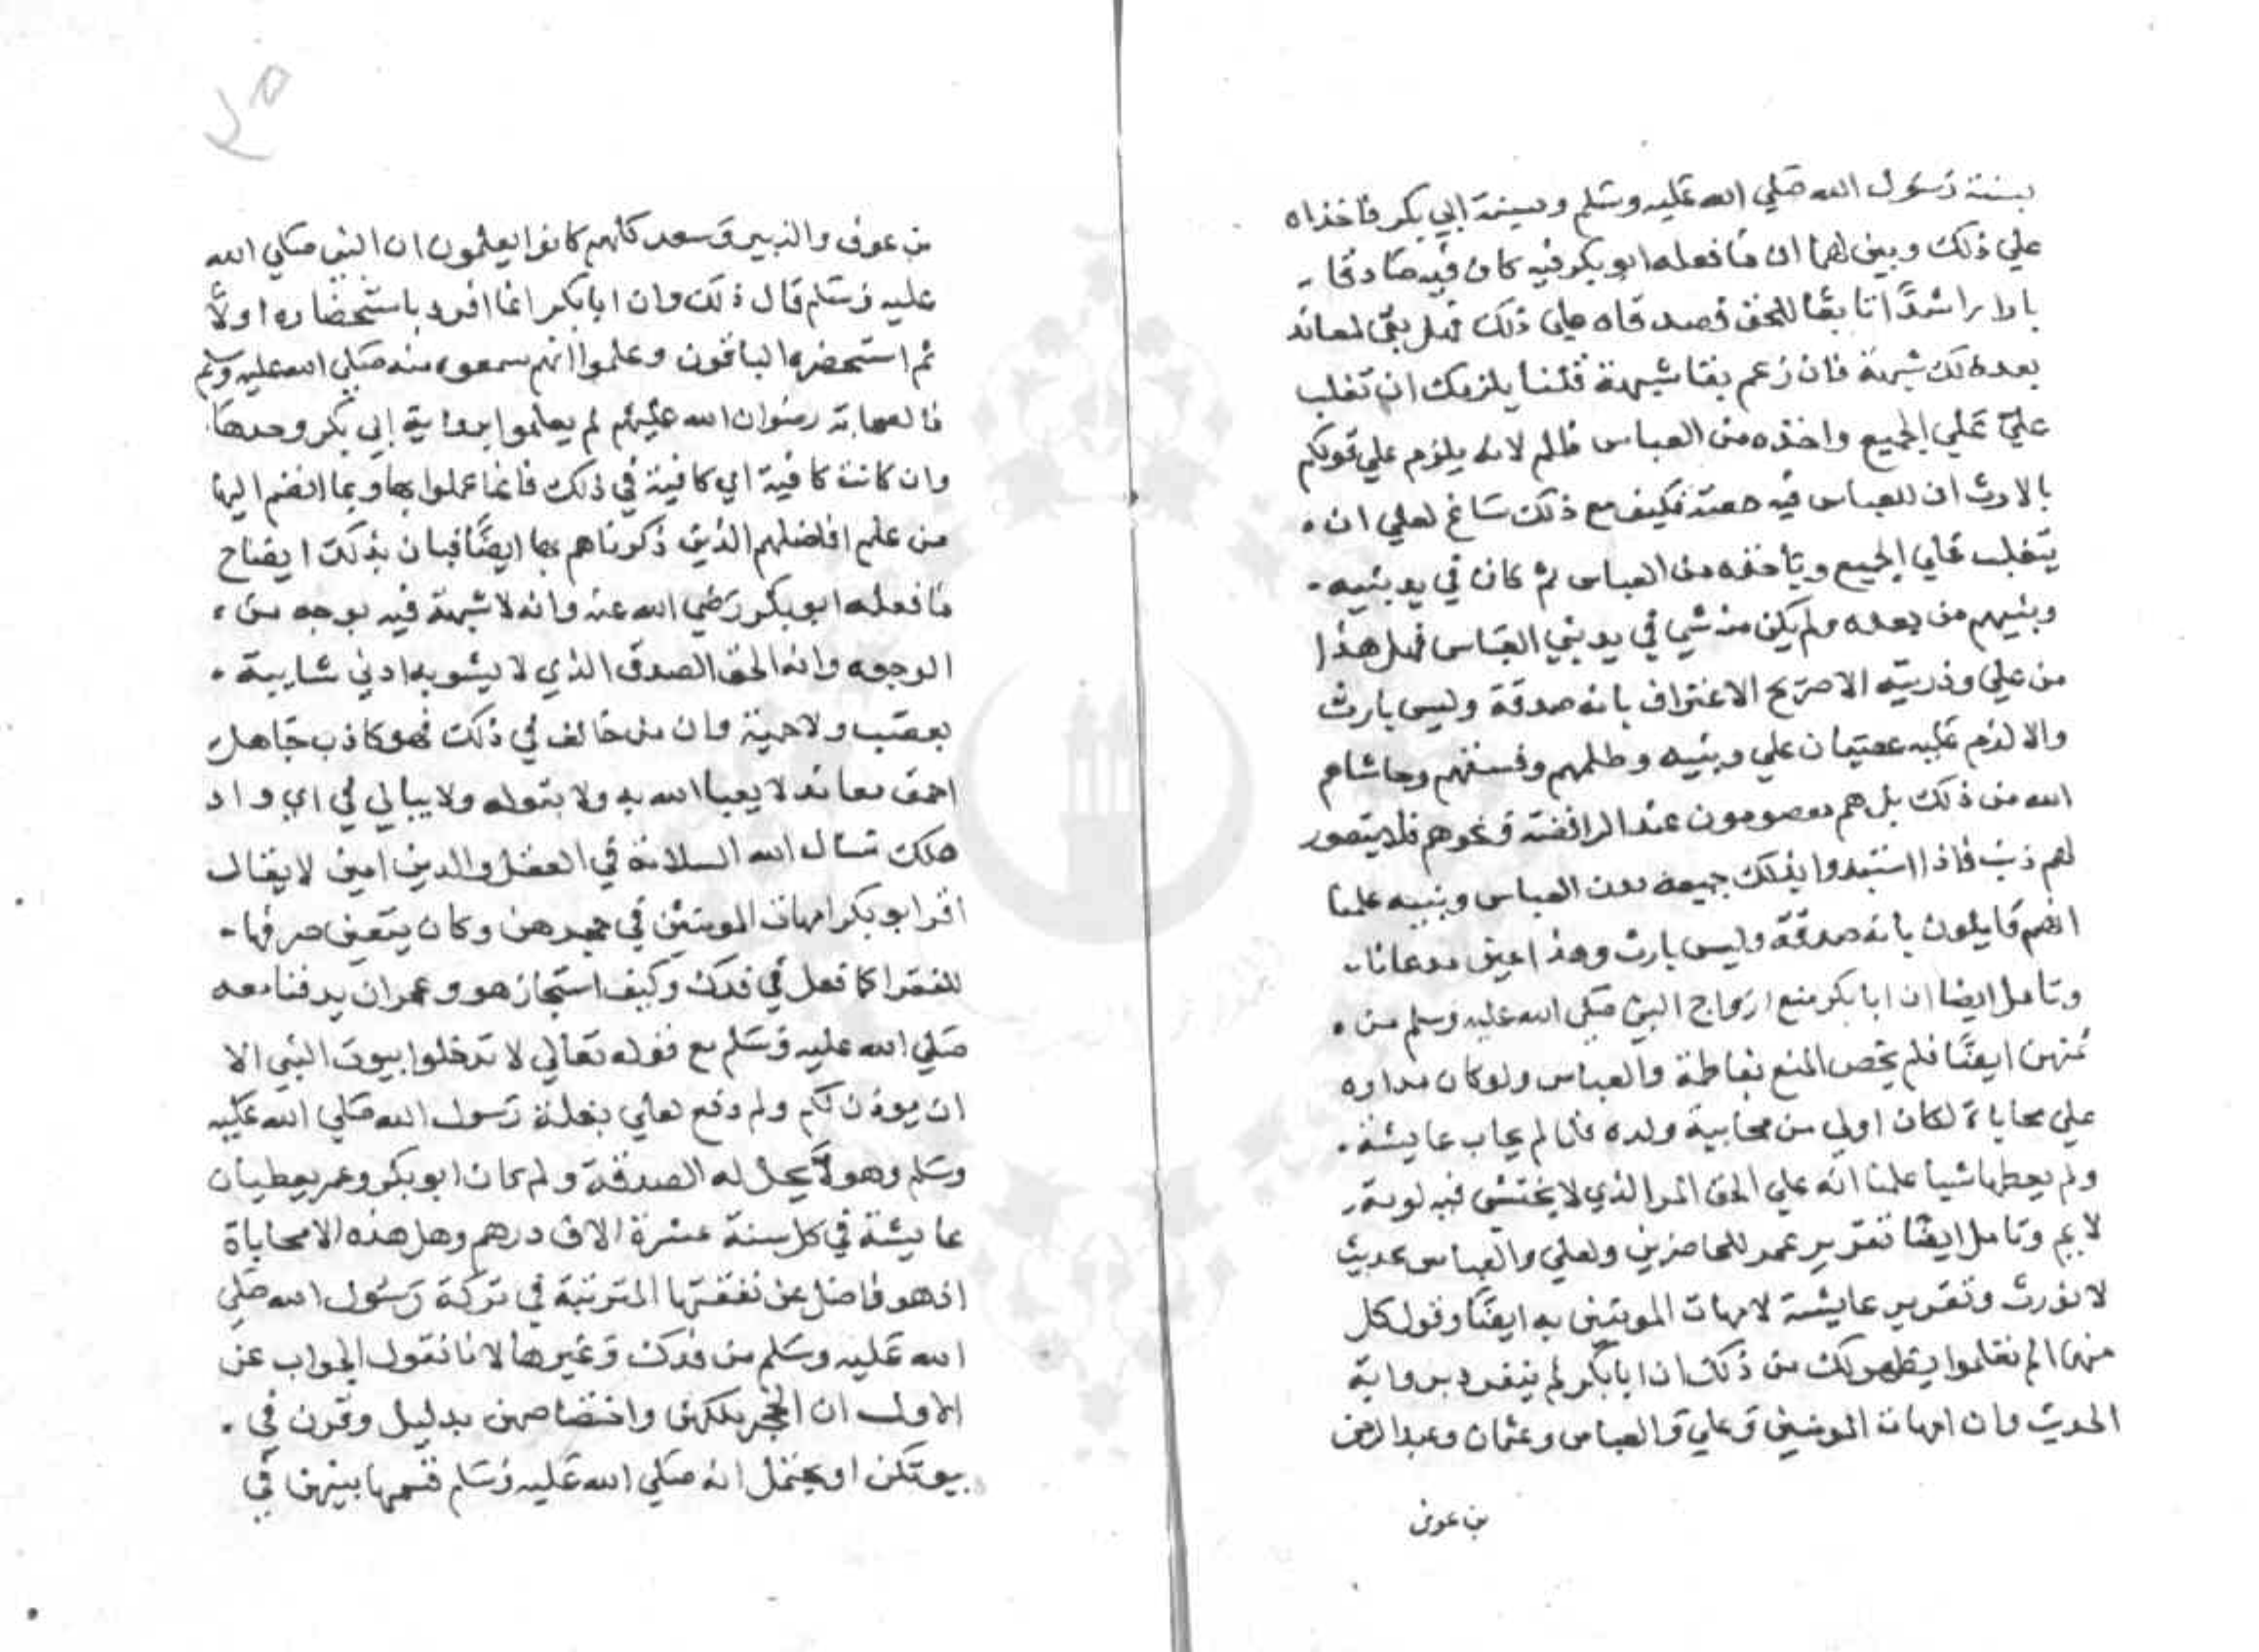 بسنة رسول الله صلي الله عليه وسلم وبسنة ابي بكر فاخذاه
علي ذلك وبين لهما ان ما فعله ابو بكر فيه كان فيه صادقا
بارا راشدًا تابعًا للحق فصدقاه علي ذلك فهل بقي لمعاند
بعد ذلك شبهة فان زعم بقا شبهة قلنا يلزمك ان تغلب
علي علي الجميع واخذه من العباس ظلم لانه يلزم علي قولكم
بالارث ان للعباس فيه حصة فكيف مع ذلك ساغ لعلي ان
يتغلب علي الجميع وياخذه من العباس ثم كان في يد بنيه
وبنيهم من بعده ولم يكن منه شي في يد بني العباس فهل هذا
من علي وذريته الا صريح الاعتراف بانه صدقة وليس بارث
والا لزم عليه عصيان علي وبنيه وظلمهم وفسقهم وحاشاهم
الله من ذلك بل هم معصومون عند الرافضة ونحوهم فلا يتصور
لهم ذنب فاذا استبدوا بذلك جميعه دون العباس وبنيه علمنا
انهم قايلون بانه صدقة وليس بارث وهذا عين مدعانا
وتامل ايضا ان ابا بكر منع ازواج النبي صلي الله عليه وسلم من
ثمنهن ايضًا فلم يخص المنع بفاطمة والعباس ولو كان مداره
علي محاباة لكان اولي من محابية ولده فلما لم يحاب عايشة
ولم يعطها شيا علمنا انه علي الحق المر الذي لا يختشي فيه لومة
لايم وتامل ايضًا تقرير عمر للحاضرين ولعلي والعباس بحديث
لا نورث وتقرير عايشة لامهات المومنين به ايضًا وقول كل
منهما الم تعلموا يظهر لك من ذلك ان ابا بكر لم ينفرد برواية
الحديث وان امهات المومنين وعلي والعباس وعثمان وعبد الرحمن
بن عوف
بن عوف والزبير وسعد كانهم كانوا يعلمون ان النبي صلي الله
عليه وسلم قال ذلك وان ابا بكر انما انفرد باستحضاره اولًا
ثم استحضره الباقون وعلموا انهم سمعوه منه صلي الله عليه وسلم
فالصحابة رضوان الله عليهم لم يعلموا برواية ابي بكر وحدها
وان كانت كافية اي كافية في ذلك فانما عملوا بها وبما انضم اليها
من علم افاضلهم الذين ذكرناهم بها ايضًا فبان بذلك ايضاح
ما فعله ابو بكر رضي الله عنه وانه لا شبهة فيه بوجه من
الوجوه وانه الحق الصدق الذي لا يشوبه ادني شايبة
بعصب ولا حمية وان من خالف في ذلك فهو كاذب جاهل
احمق معاند لا يعبا الله به ولا بقوله ولا يبالي في اي واد
هلك نسال الله السلامة في العقل والدين امين لا يقال
اقر ابو بكر امهات المومنين في حجرهن وكان يتعين صرفها
للفقرا كما فعل في فدك وكيف استجاز هو وعمر ان يدفنا معه
صلي الله عليه وسلم مع قوله تعالي لا تدخلوا بيوت النبي الا
ان يوذن لكم ولم دفع لعلي بغلة رسول الله صلي الله عليه
وسلم وهو لا يحل له الصدقة ولم كان ابو بكر وعمر يعطيان
عايشة في كل سنة عشرة الاف درهم وهل هذه الا محاباة
اذ هو فاضل عن نفقتها المترتبة في تركة رسول الله صلي
الله عليه وسلم من فدك وغيرها لانا نقول الجواب عن
الاول ان الحجر ملكهن واختصاصهن بدليل وقرن في
بيوتكن او يحتمل انه صلي الله عليه وسلم قسمها بينهن في